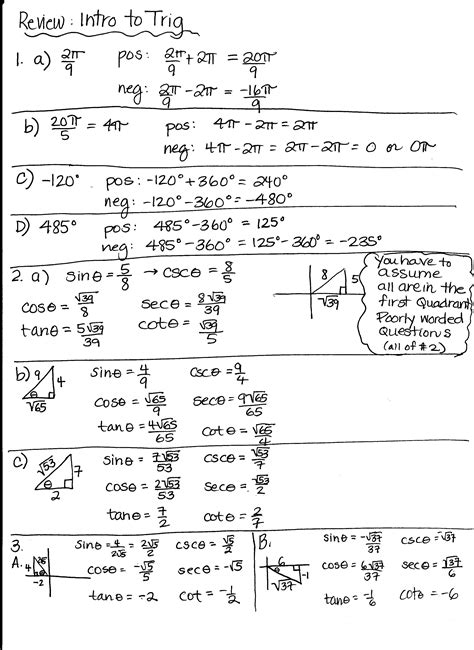 Review: Intro to Trig
1. a) 2π/9 pos: 2π/9 + 2π = 20π/9
neg: 2π/9 - 2π = -16π/9
b) 20π/5 = 4π pos: 4π - 2π = 2π
neg: 4π - 2π = 2π - 2π = 0 or 0π
C) -120° pos: -120° + 360° = 240°
neg: -120° - 360° = -480°
D) 485° pos: 485° - 360° = 125°
neg: 485° - 360° = 125° - 360° = -235°
2. a) sinθ = 5/8 → cscθ = 8/5
cosθ = √39/8 secθ = 8√39/39
tanθ = 5√39/39 cotθ = √39/5
8 5 √39
You have to
assume
all are in the
first Quadrant
Poorly worded
Questions
(all of #2)
b) 9 4 θ √65 sinθ = 4/9 cscθ = 9/4
cosθ = √65/9 secθ = 9√65/65
tanθ = 4√65/65 cotθ = √65/4
C) √53 7 θ 2 sinθ = 7√53/53 cscθ = √53/7
cosθ = 2√53/53 secθ = √53/2
tanθ = 7/2 cotθ = 2/7
3.
A. 4 θ -2 sinθ = 4/2√5 = 2√5/2 cscθ = √5/2
cosθ = -√5/5 secθ = -√5
tanθ = -2 cot = -1/2
B. 6 -1 √37 sinθ = -√37/37 cscθ = √37
cosθ = 6√37/37 secθ = √37/6
tanθ = -1/6 cotθ = -6